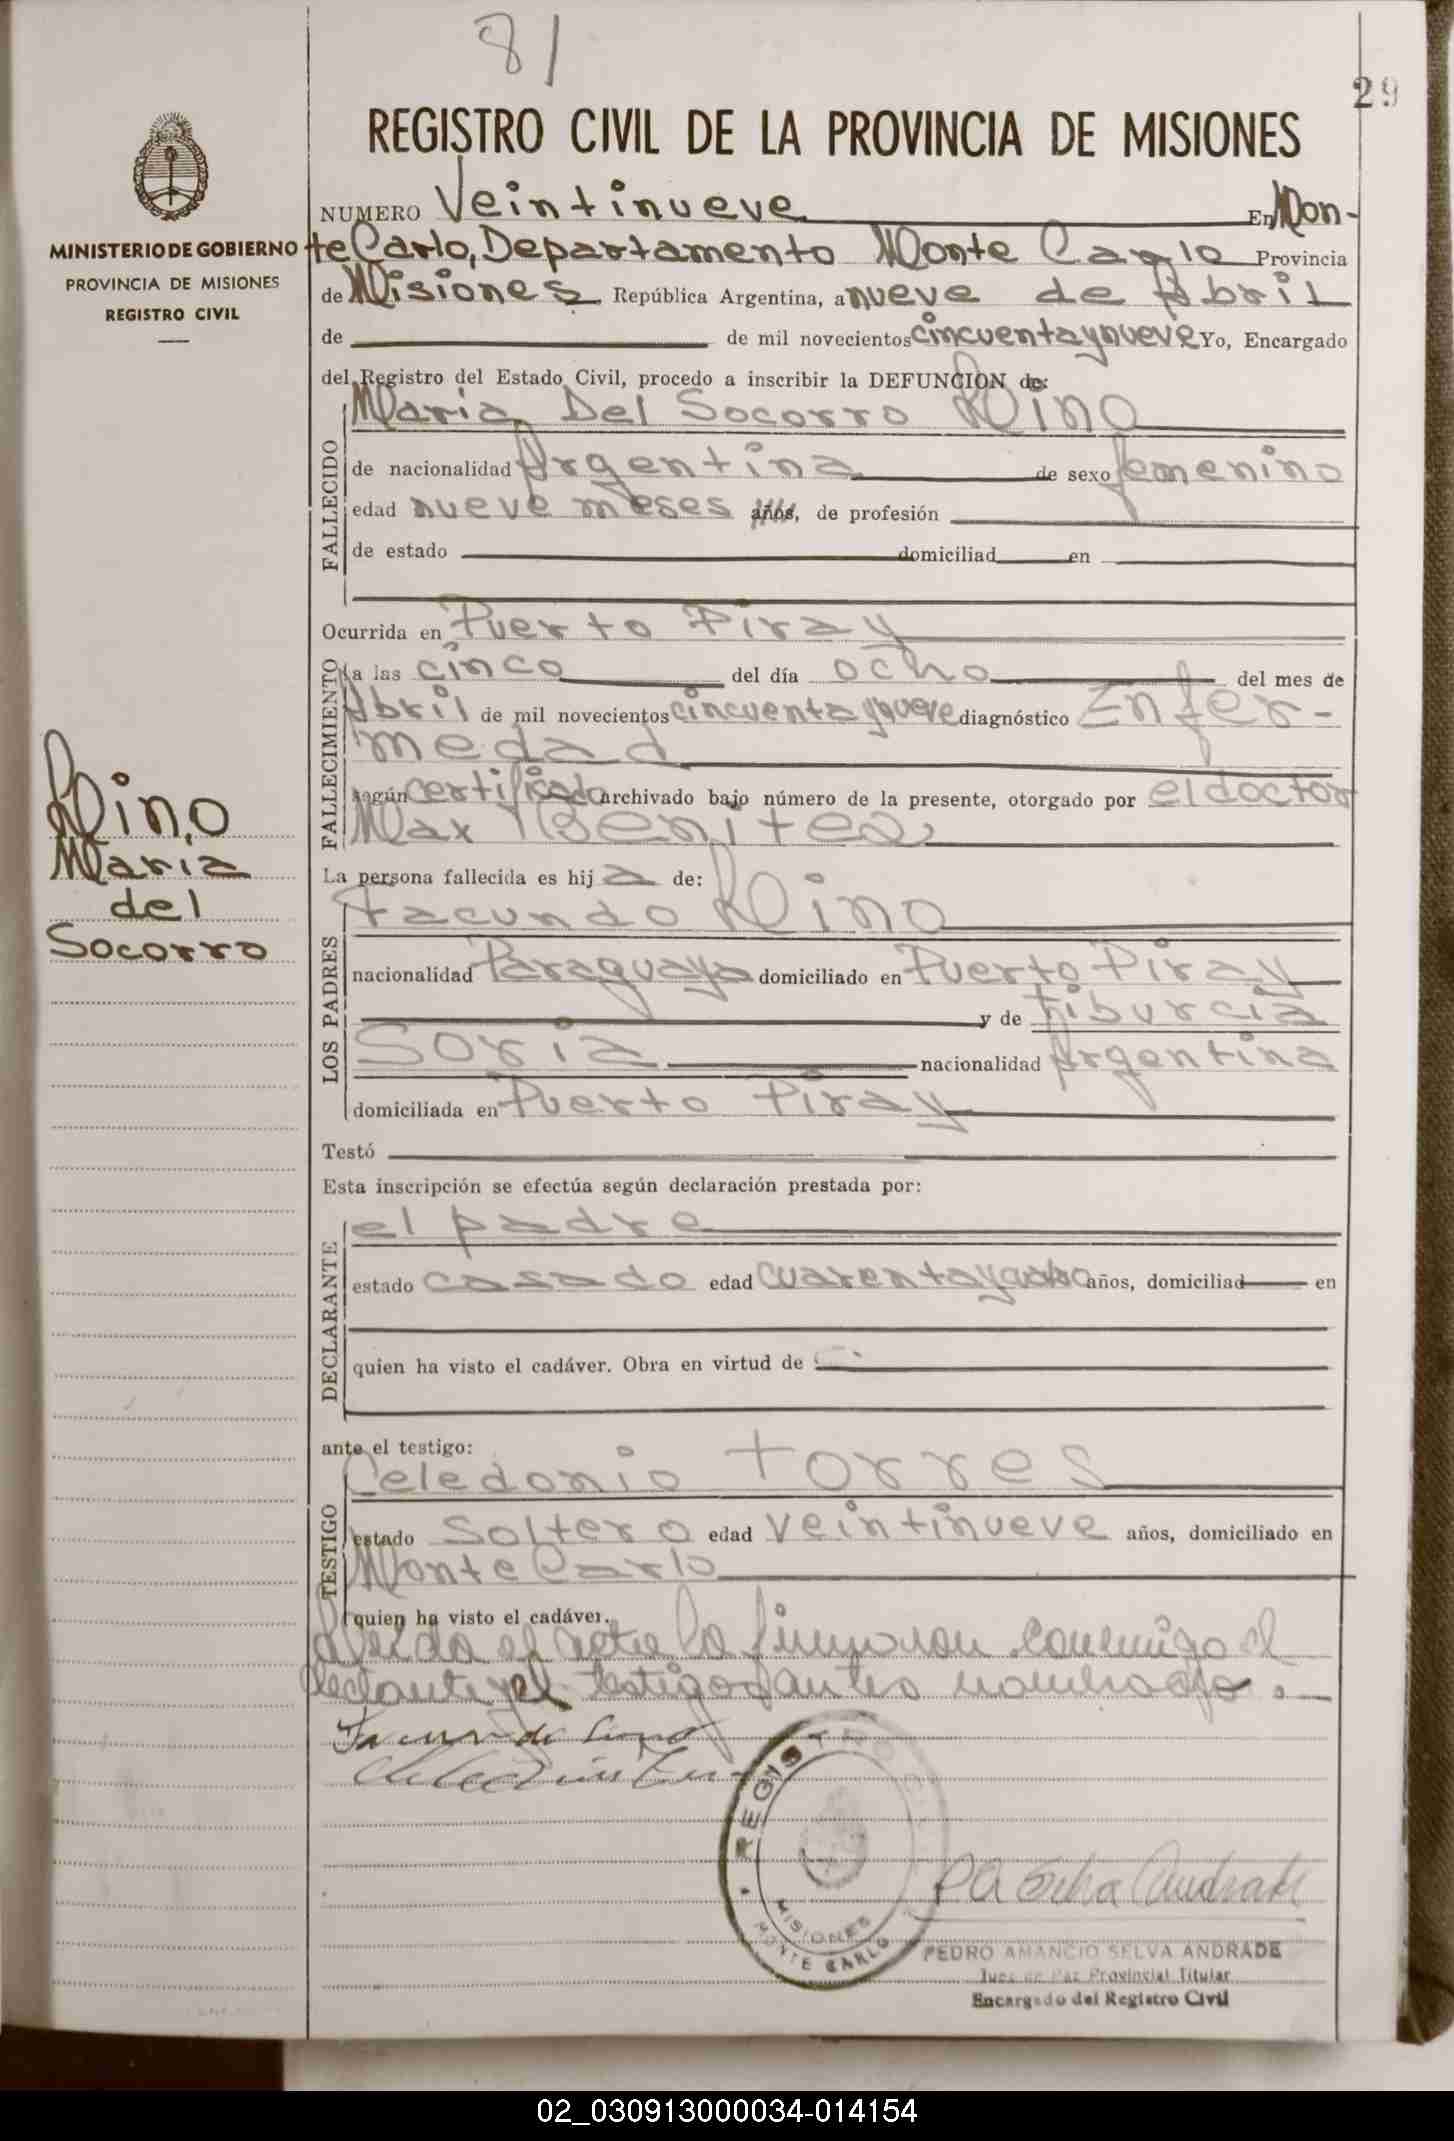 81
29
REGISTRO CIVIL DE LA PROVINCIA DE MISIONES
MINISTERIO DE GOBIERNO
PROVINCIA DE MISIONES
REGISTRO CIVIL
NUMERO Veintinueve En Mon-
te Carlo, Departamento Monte Carlo Provincia
de Misiones República Argentina, a nueve de Abril
de de mil novecientos cincuenta y nueve Yo, Encargado
del Registro del Estado Civil, procedo a inscribir la DEFUNCION de:
FALLECIDO
Maria Del Socorro
de nacionalidad Argentina de sexo femenino
edad nueve meses años, de profesión
de estado domiciliad en
Ocurrida en Puerto Piray
FALLECIMIENTO
a las cinco del día ocho del mes de
Abril de mil novecientos cincuenta y nueve diagnóstico Enfer-
medad
según certificado archivado bajo número de la presente, otorgado por el doctor
Max Benitez
Maria
del
Socorro
La persona fallecida es hij a de:
LOS PADRES
Facundo
nacionalidad Paraguaya domiciliado en Puerto Piray
y de Tiburcia
Soria nacionalidad Argentina
domiciliada en Puerto Piray
Testó
Esta inscripción se efectúa según declaración prestada por:
DECLARANTE
el padre
estado casado edad cuarenta y años, domiciliad en
quien ha visto el cadáver. Obra en virtud de
ante el testigo:
TESTIGO
Celedonio Torres
estado Soltero edad veintinueve años, domiciliado en
Monte Carlo
quien ha visto el cadáver.
Leida el acta la firmaron conmigo el
y el testigo antes nombrado.
REGISTRO CIVIL
MISIONES
MONTE CARLO
PEDRO AMANCIO SELVA ANDRADE
Juez de Paz Provincial Titular
Encargado del Registro Civil
02_030913000034-014154